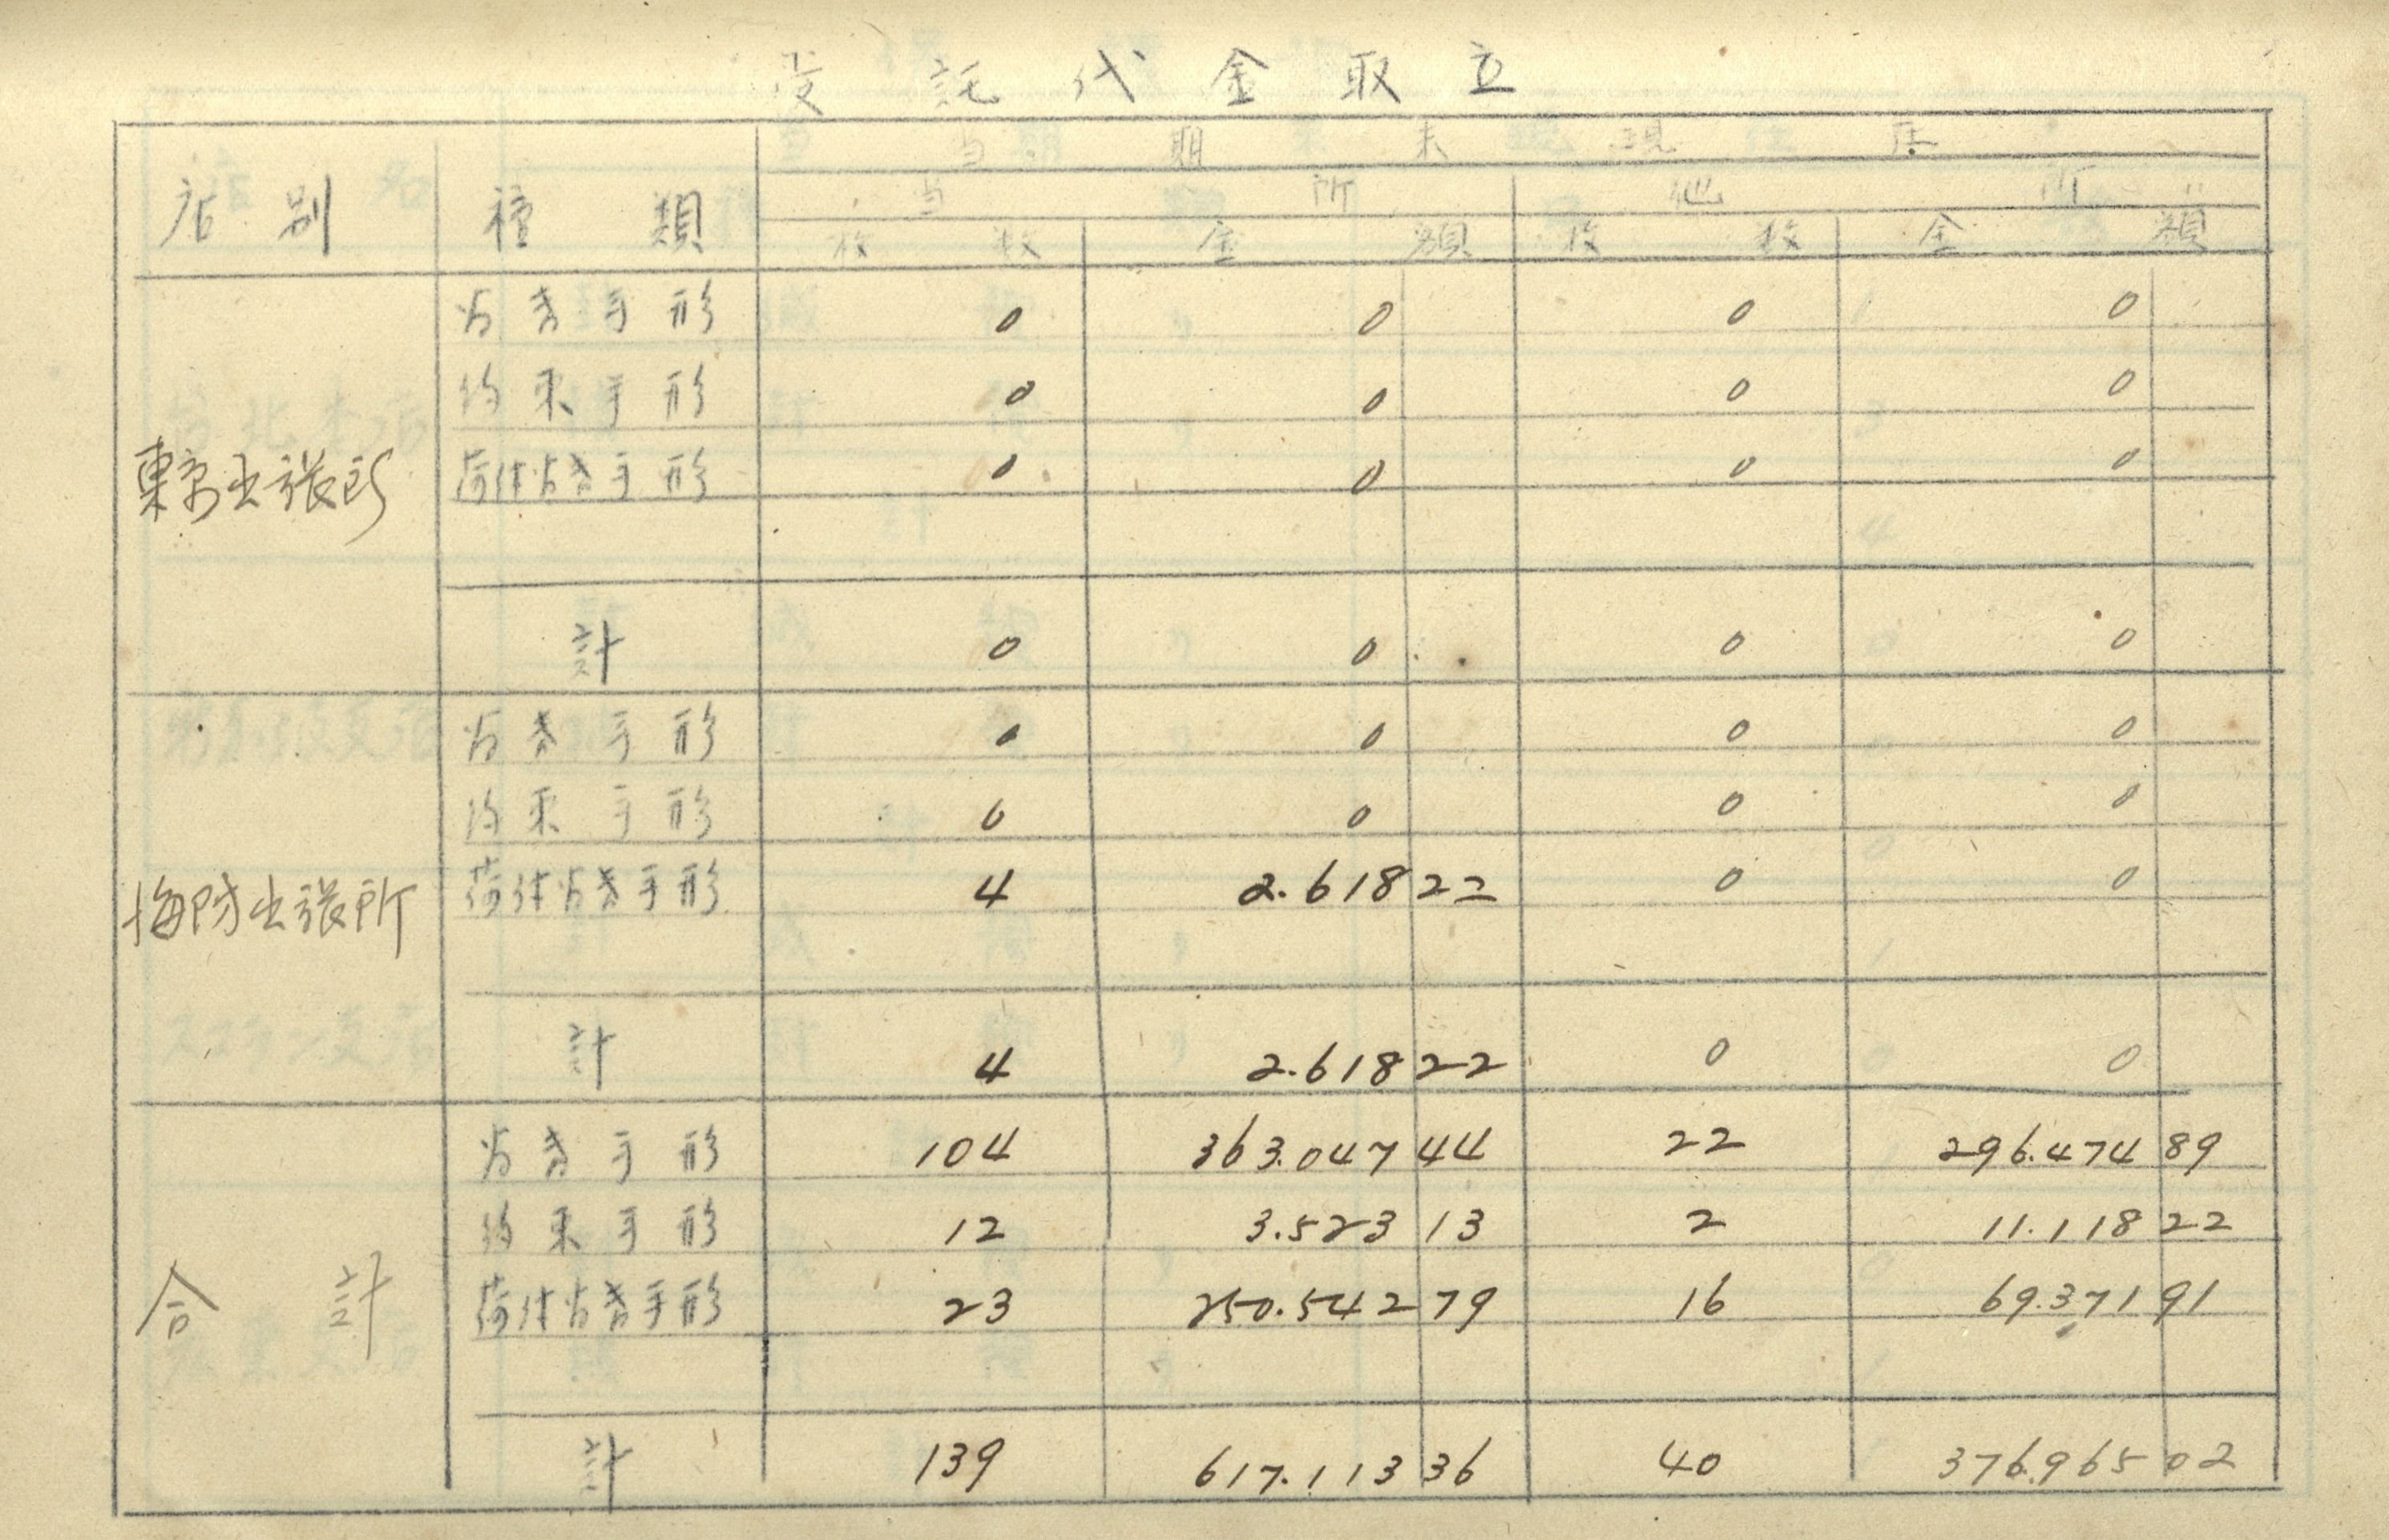 受託代金取立
当期末現在
店別 種類 当所 他所
枚数 金額 枚数 金額
東京出張所 为替手形 0 0 0 0
約束手形 0 0 0 0
荷付为替手形 0 0 0 0
計 0 0 0 0
海防出張所 为替手形 0 0 0 0
約束手形 0 0 0 0
荷付为替手形 4 2.618 22 0 0
計 4 2.618 22 0 0
合計 为替手形 104 363.047 44 22 296.474 89
約束手形 12 3.523 13 2 11.118 22
荷付为替手形 23 250.542 79 16 69.371 91
計 139 617.113 36 40 376.965 02